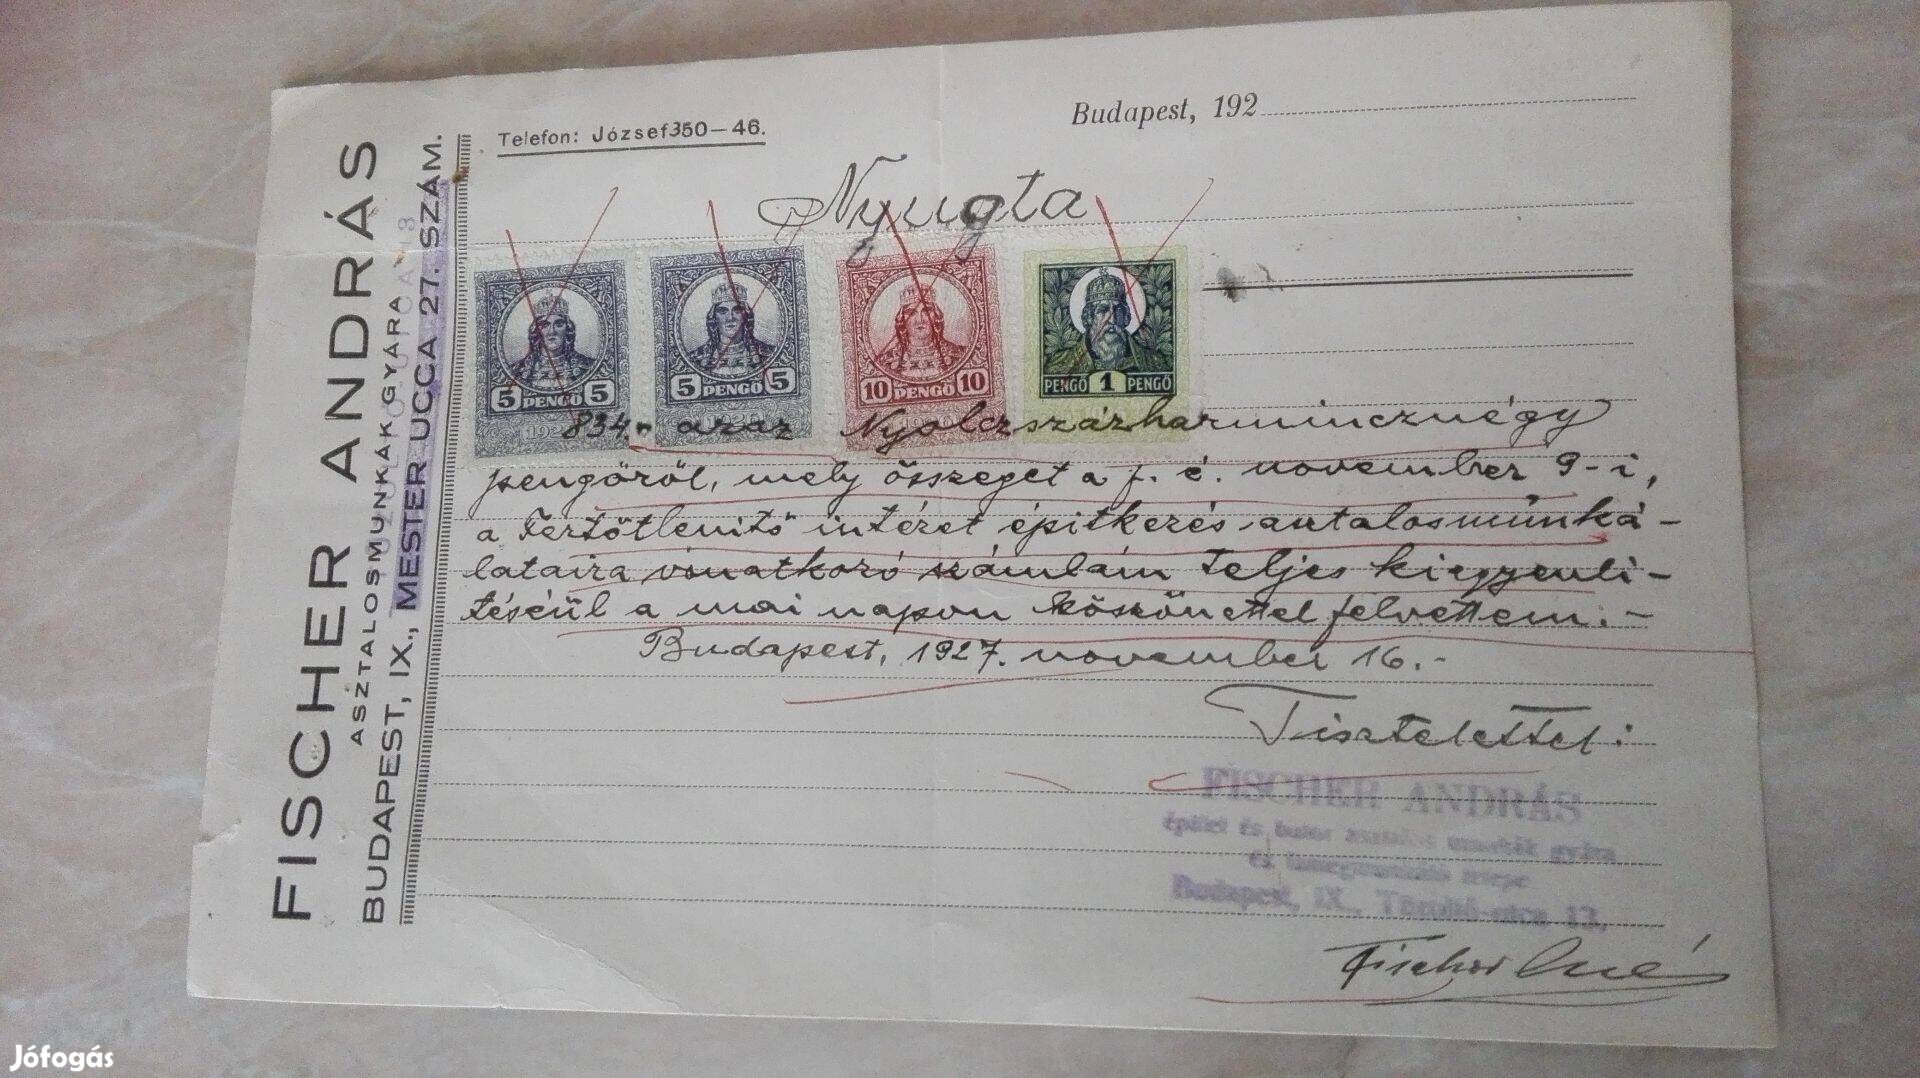 FISCHER ANDRÁS
ASZTALOSMUNKÁK GYÁRA
BUDAPEST, IX., MESTER UCCA 27. SZÁM.
Telefon: József 350—46.
Budapest, 192
Nyugta
5 PENGŐ 5
5 PENGŐ 5
10 PENGŐ 10
PENGŐ 1 PENGŐ
834.- azaz Nyolczszázharmincznégy
pengőről, mely összeget a f. é. november 9-i,
a Fertőtlenitő intézet épitkezés asztalosmunká-
lataira vonatkozó számlám teljes kiegyenli-
téséül a mai napon köszönettel felvettem.-
Budapest, 1927. november 16.-
Tisztelettel:
FISCHER ANDRÁS
épület és butor asztalos munkák gyára
Budapest, IX., Tűzoltó-utca 13.
Fischer
Jófogás